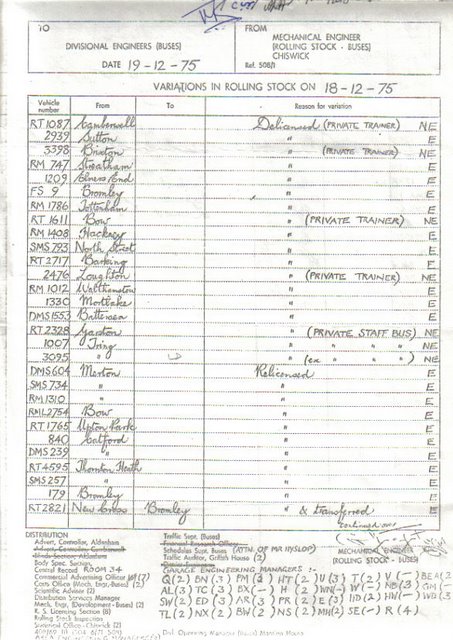 TO
DIVISIONAL ENGINEERS (BUSES)
DATE 19-12-75
FROM
MECHANICAL ENGINEER
(ROLLING STOCK - BUSES)
CHISWICK
Ref. 508/1
VARIATIONS IN ROLLING STOCK ON 18-12-75
Vehicle number From To Reason for variation
RT1087 Camberwell Delicensed (PRIVATE TRAINER) NE
2939 Sutton " E
3398 Brixton " (PRIVATE TRAINER) NE
RM 747 Streatham " E
1209 Elmers End " E
FS 9 Bromley " E
RM 1786 Tottenham " E
RT 1611 Bow " (PRIVATE TRAINER) NE
RM 1408 Hackney " E
SMS 793 North Street " E
RT 2717 Barking " E
2476 Loughton " (PRIVATE TRAINER) NE
RM 1012 Walthamstow " E
1330 Mortlake " E
DMS1553 Battersea " E
RT 2328 Garston " (PRIVATE STAFF BUS) NE
1007 Tring " " " " NE
3095 " " (ex " " ) NE
DMS604 Merton Relicensed E
SMS 734 " " E
RM1310 " " E
RML2754 Bow " E
RT1765 Upton Park " E
840 Catford " E
DMS 239 " " E
RT4595 Thornton Heath " E
SMS 257 " " E
179 Bromley " E
RT2821 New Cross Bromley " & transferred E
continued over
DISTRIBUTION
Advert. Controller, Aldenham
Body Spec. Section,
Central Record ROOM 34
Commercial Advertising Officer
Costs Office (Mech. Engr. Buses) (2)
Scientific Adviser (2)
Distribution Services Manager
Mech. Engr. (Development - Buses) (2)
R. S. Licensing Section (8)
Rolling Stock Inspection
Technical Office - Chiswick (2)
Traffic Supt. (Buses)
Schedules Supt. Buses (ATTN. OF MR HYSLOP)
Traffic Auditor, Griffith House (2)
MECHANICAL ENGINEER
(ROLLING STOCK - BUSES)
GARAGE ENGINEERING MANAGERS :-